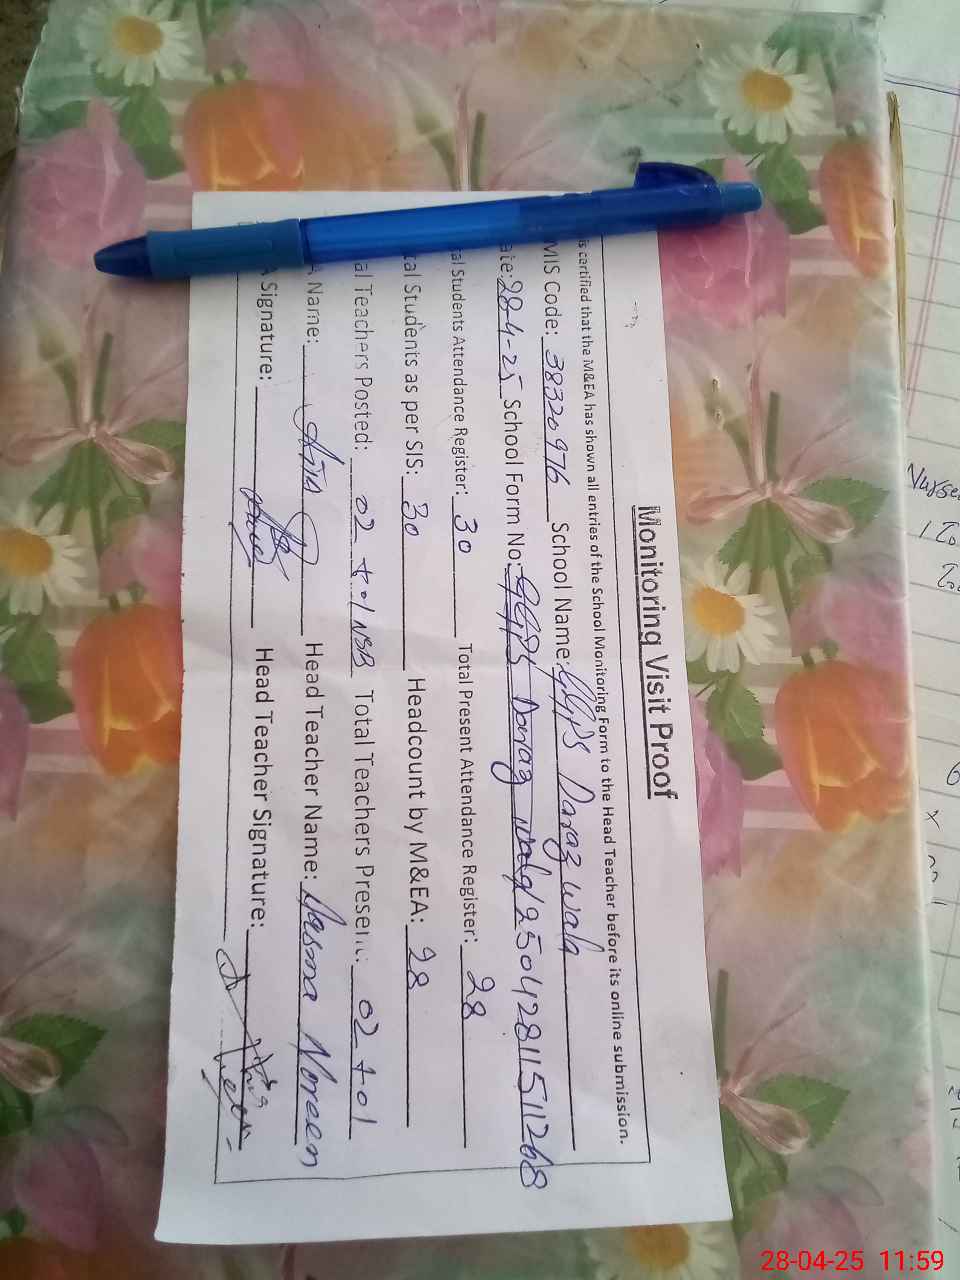 Monitoring Visit Proof
is certified that the M&EA has shown all entries of the School Monitoring Form to the Head Teacher before its online submission.
MIS Code: 38320976 School Name: GGPS Daraz wala
ate: 28-4-25 School Form No: GGPS Daraz wala 25042811511268
al Students Attendance Register: 30 Total Present Attendance Register: 28
tal Students as per SIS: 30 Headcount by M&EA: 28
al Teachers Posted: 02 +01 NSB Total Teachers Present: 02 +01
A Name: Head Teacher Name: Yasma Noreen
A Signature: Head Teacher Signature:
28-04-25 11:59